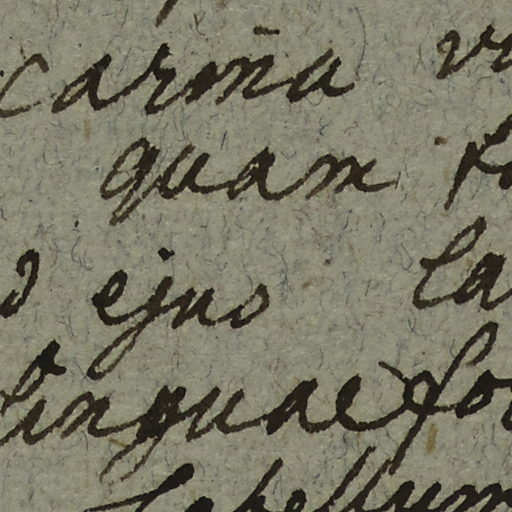 carina
quam
ejus la
linguaefo
labellum